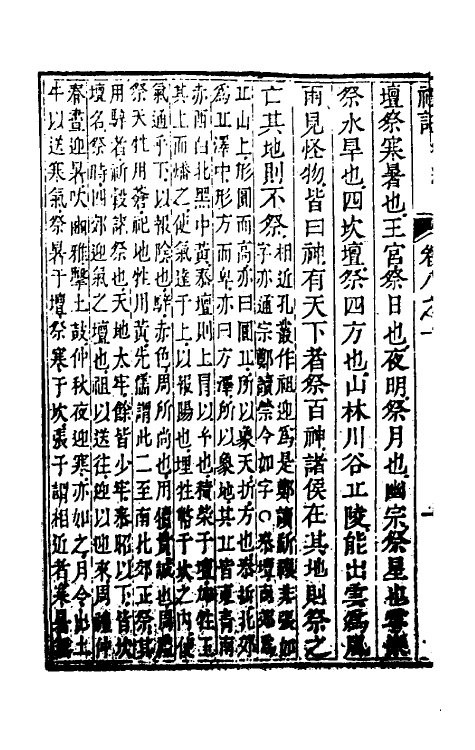 壇祭寒暑也王宮祭日也夜明祭月也幽宗祭星也雩禜
祭水旱也四坎壇祭四方也山林川谷丘陵能出雲爲風
雨見怪物皆曰神有天下者祭百神諸侯在其地則祭之
亡其地則不祭
相近孔叢作祖迎爲是鄭讀
字亦通宗鄭讀禜今如字○泰壇
丘山上形圓而高亦曰圓丘所以象天折方也泰折北郊
爲丘澤中形方而卑亦曰方澤所以象地其丘皆東青南
赤西白北黑中黃泰壇則上冒以乎也積柴于壇加牲玉
其上而燔之使氣達于上以報陽也埋牲幣于坎之内使
氣通乎下以報陰也騂赤色周所尚也用犢貴誠也周禮
祭天牲用蒼祀地牲用黃先儒謂此二至南北郊正祭其
用騂者祈穀諸祭也天地太牢餘皆少牢泰昭以下皆坎
壇名祭時四郊迎氣之壇也祖以送往迎以迎來周禮仲
春晝迎暑吹豳雅擊土鼓仲秋夜迎寒亦如之月令出土
牛以送寒氣祭暑于壇祭寒于坎張子謂相近者寒暑